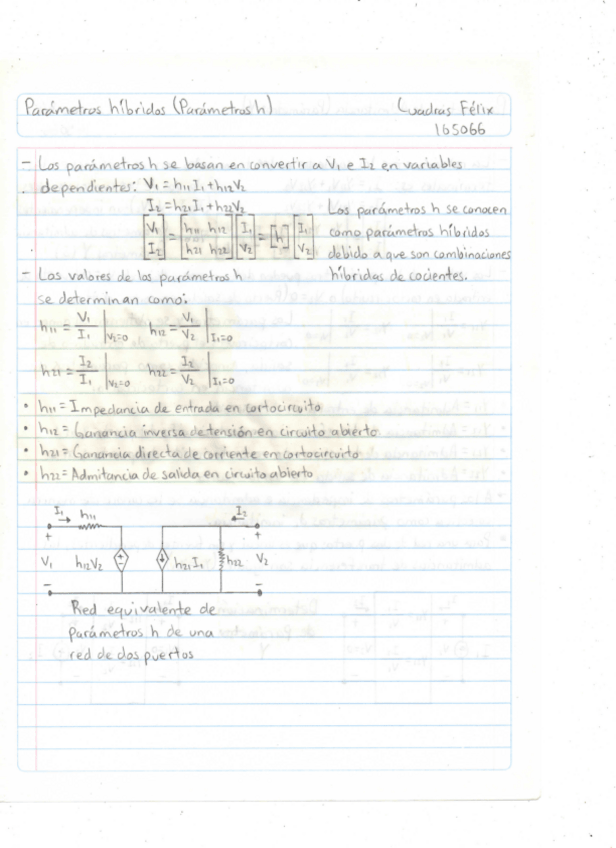 Parámetros híbridos (Parámetros h)
Cuadras Félix
165066
- Los parámetros h se basan en convertir a V₁ e I₂ en variables
dependientes: V₁ = h₁₁I₁ + h₁₂V₂
I₂ = h₂₁I₁ + h₂₂V₂
[V₁ I₂] = [h₁₁ h₁₂ h₂₁ h₂₂] [I₁ V₂] = [h] [I₁ V₂]
Los parámetros h se conocen
como parámetros híbridos
debido a que son combinaciones
híbridas de cocientes.
- Los valores de los parámetros h
se determinan como:
h₁₁ = V₁/I₁ |V₂=0 h₁₂ = V₁/V₂ |I₁=0
h₂₁ = I₂/I₁ |V₂=0 h₂₂ = I₂/V₂ |I₁=0
• h₁₁ = Impedancia de entrada en cortocircuito
• h₁₂ = Ganancia inversa de tensión en circuito abierto
• h₂₁ = Ganancia directa de corriente en cortocircuito
• h₂₂ = Admitancia de salida en circuito abierto
I₁ h₁₁ I₂
+ +
V₁ h₁₂V₂ + - h₂₁I₁ h₂₂ V₂
- -
Red equivalente de
parámetros h de una
red de dos puertos